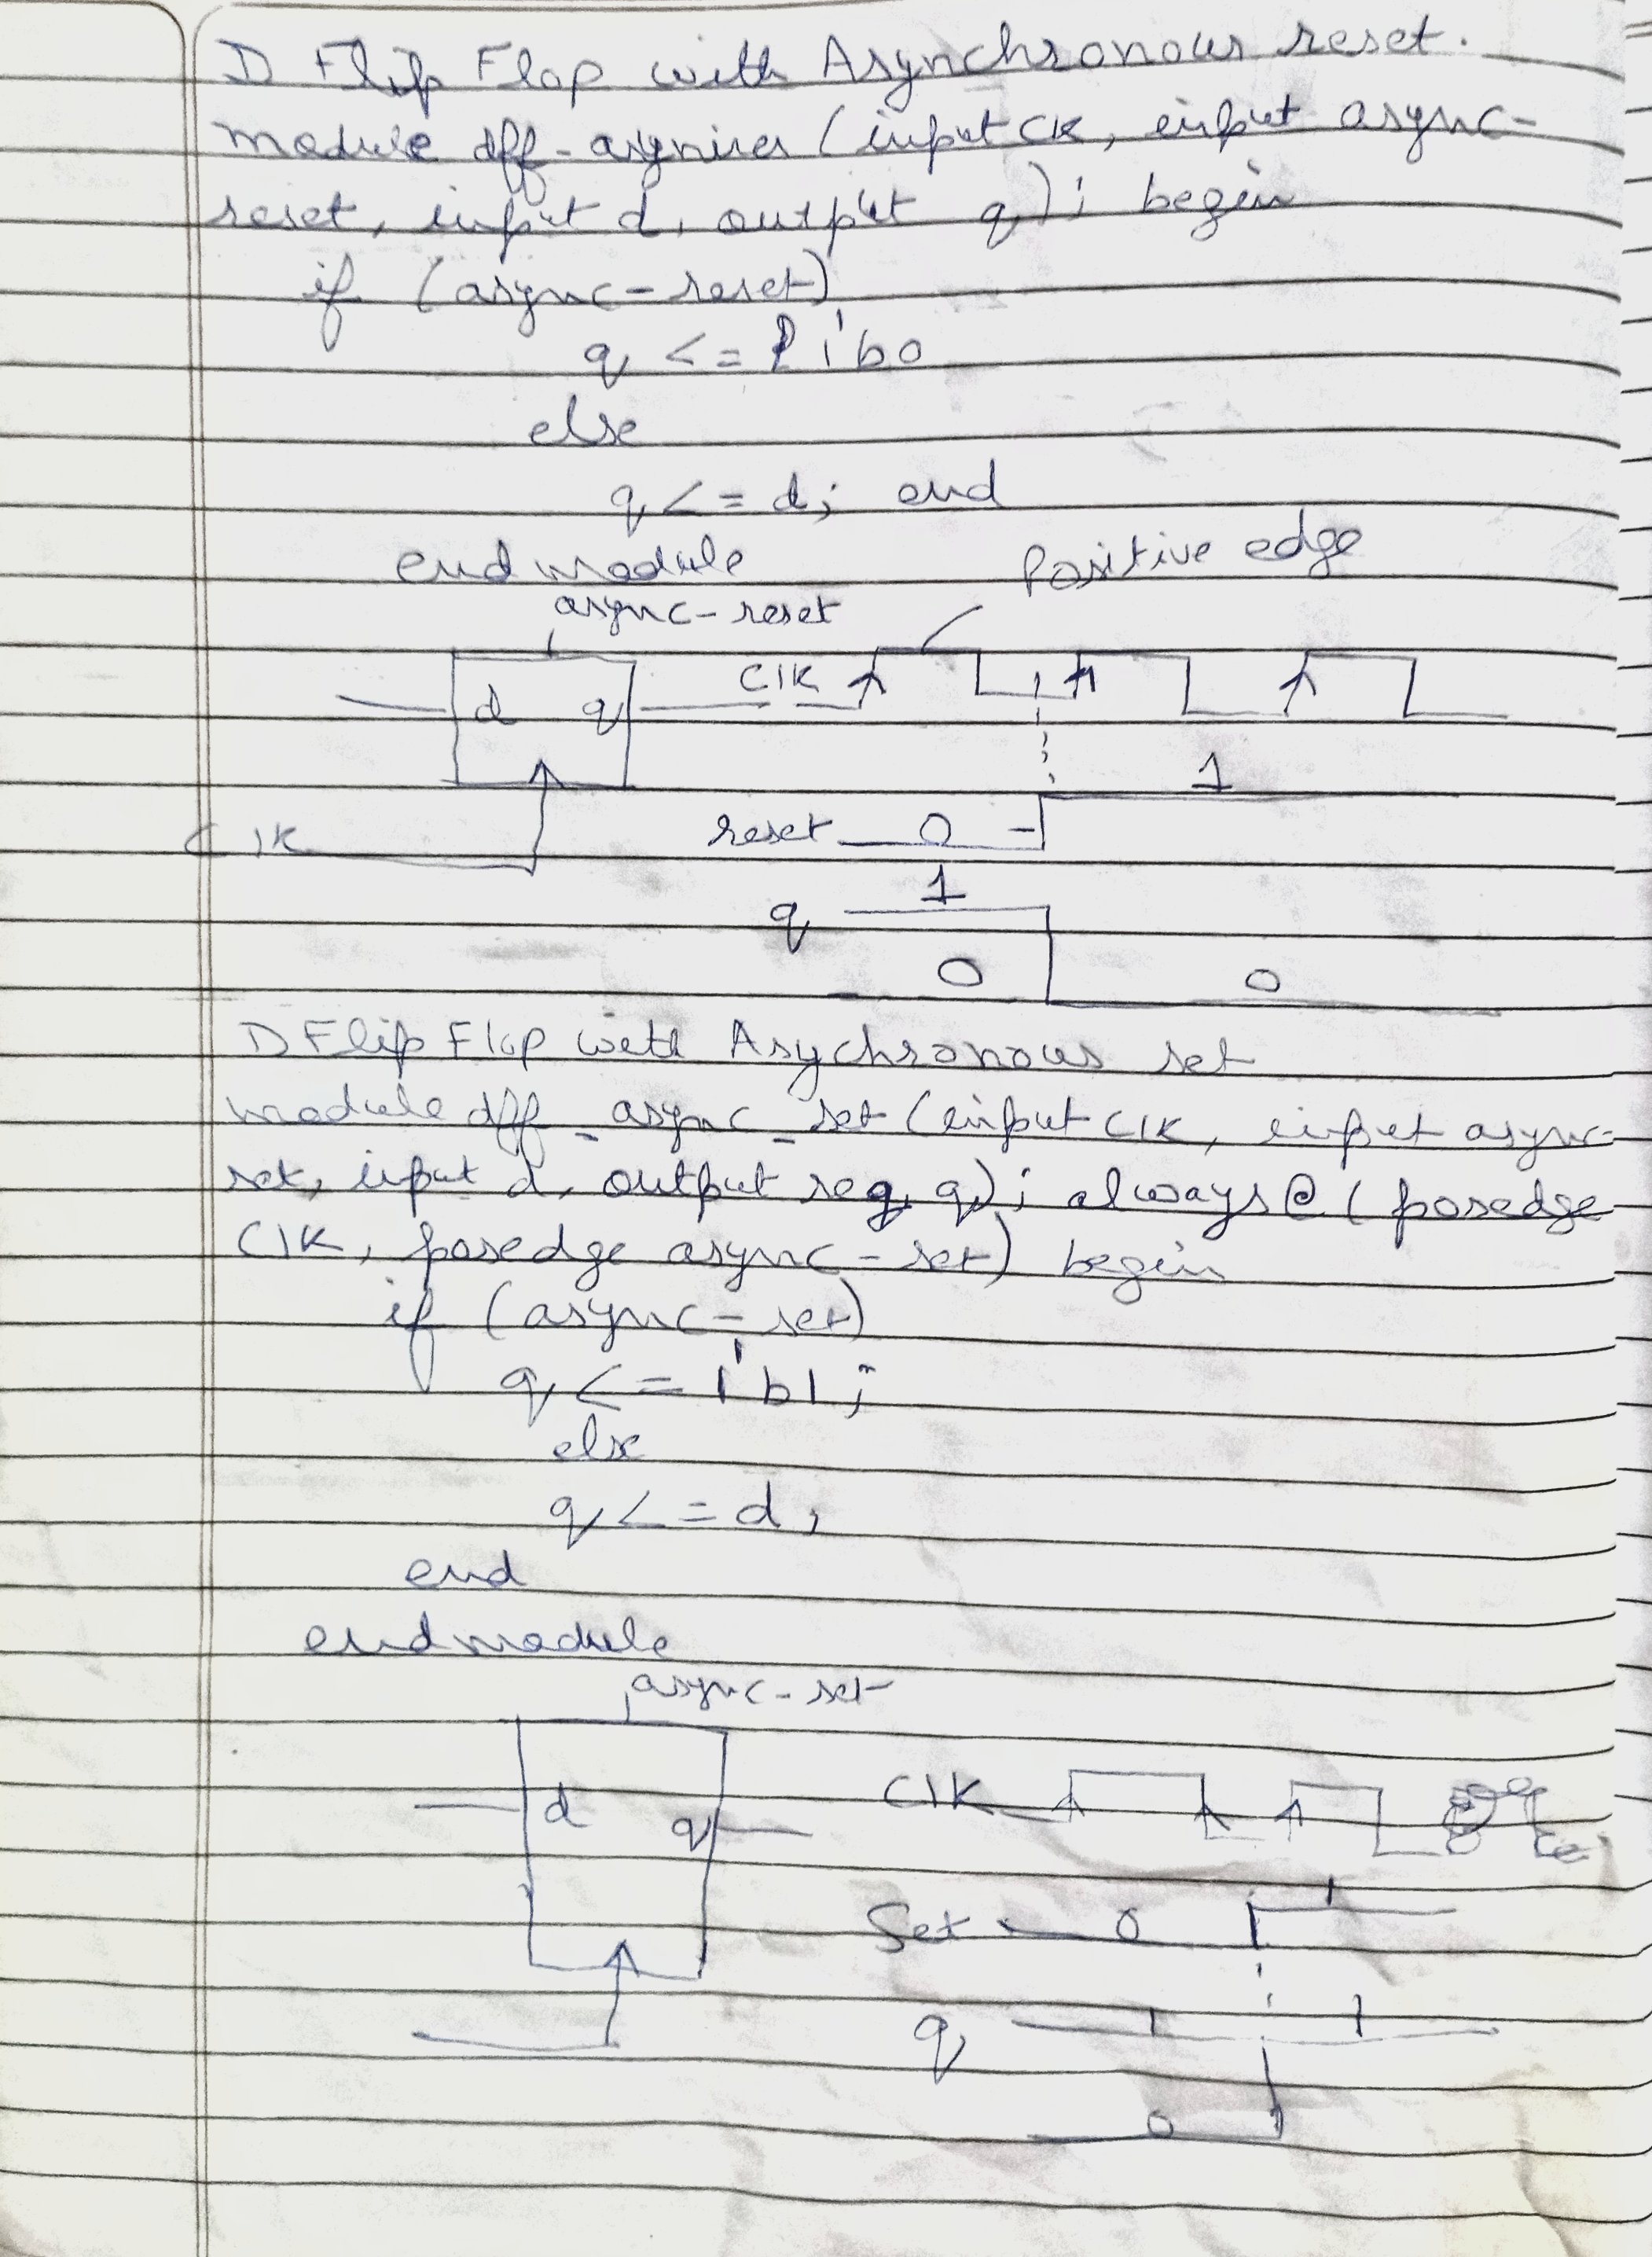 D Flip Flop with Asynchronous reset.
module dff-asynires (input CK, input async-
reset, input d, output q); begin
if (async-reset)
q <= 1'b0
else
q <= d; end
endmodule
Positive edge
async-reset
d q
CIK
1
CIK
reset 0
1
q
0 0
D Flip Flop with Asychronous set
module dff_async_set (input CIK, input async-
set, input d, output reg q); always@ (posedge
CIK, posedge async-set) begin
if (async-set)
q <= 1'b1;
else
q <= d;
end
endmodule
async-set
d
q
CIK
1
Set 0
q 1 1
0